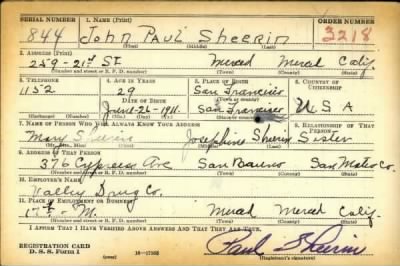 SERIAL NUMBER 1. NAME (Print) ORDER NUMBER
844 John Paul Sheerin 3218
(First) (Middle) (Last)
2. ADDRESS (Print)
259-21st St. Merced Merced Calif.
(Number and street or R. F. D. number) (Town) (County) (State)
3. TELEPHONE 4. AGE IN YEARS 5. PLACE OF BIRTH 6. COUNTRY OF CITIZENSHIP
1152 29 San Francisco
DATE OF BIRTH
June-26-1911. San Francisco U S A
(Exchange) (Number) (Mo.) (Day) (Yr.) (State or country)
7. NAME OF PERSON WHO WILL ALWAYS KNOW YOUR ADDRESS 8. RELATIONSHIP OF THAT PERSON
Mary Sheerin Josephine Sheerin Sister
(Mr., Mrs., Miss) (First) (Middle) (Last)
9. ADDRESS OF THAT PERSON
376 Cypress Ave San Bruno San Mateo Co.
(Number and street or R. F. D. number) (Town) (County) (State)
10. EMPLOYER'S NAME
Valley Drug Co.
11. PLACE OF EMPLOYMENT OR BUSINESS
17th - M. Merced Merced Calif.
(Number and street or R. F. D. number) (Town) (County) (State)
I AFFIRM THAT I HAVE VERIFIED ABOVE ANSWERS AND THAT THEY ARE TRUE.
REGISTRATION CARD
D. S. S. Form 1 (over) 16-17105 Paul Sheerin
(Registrant's signature)